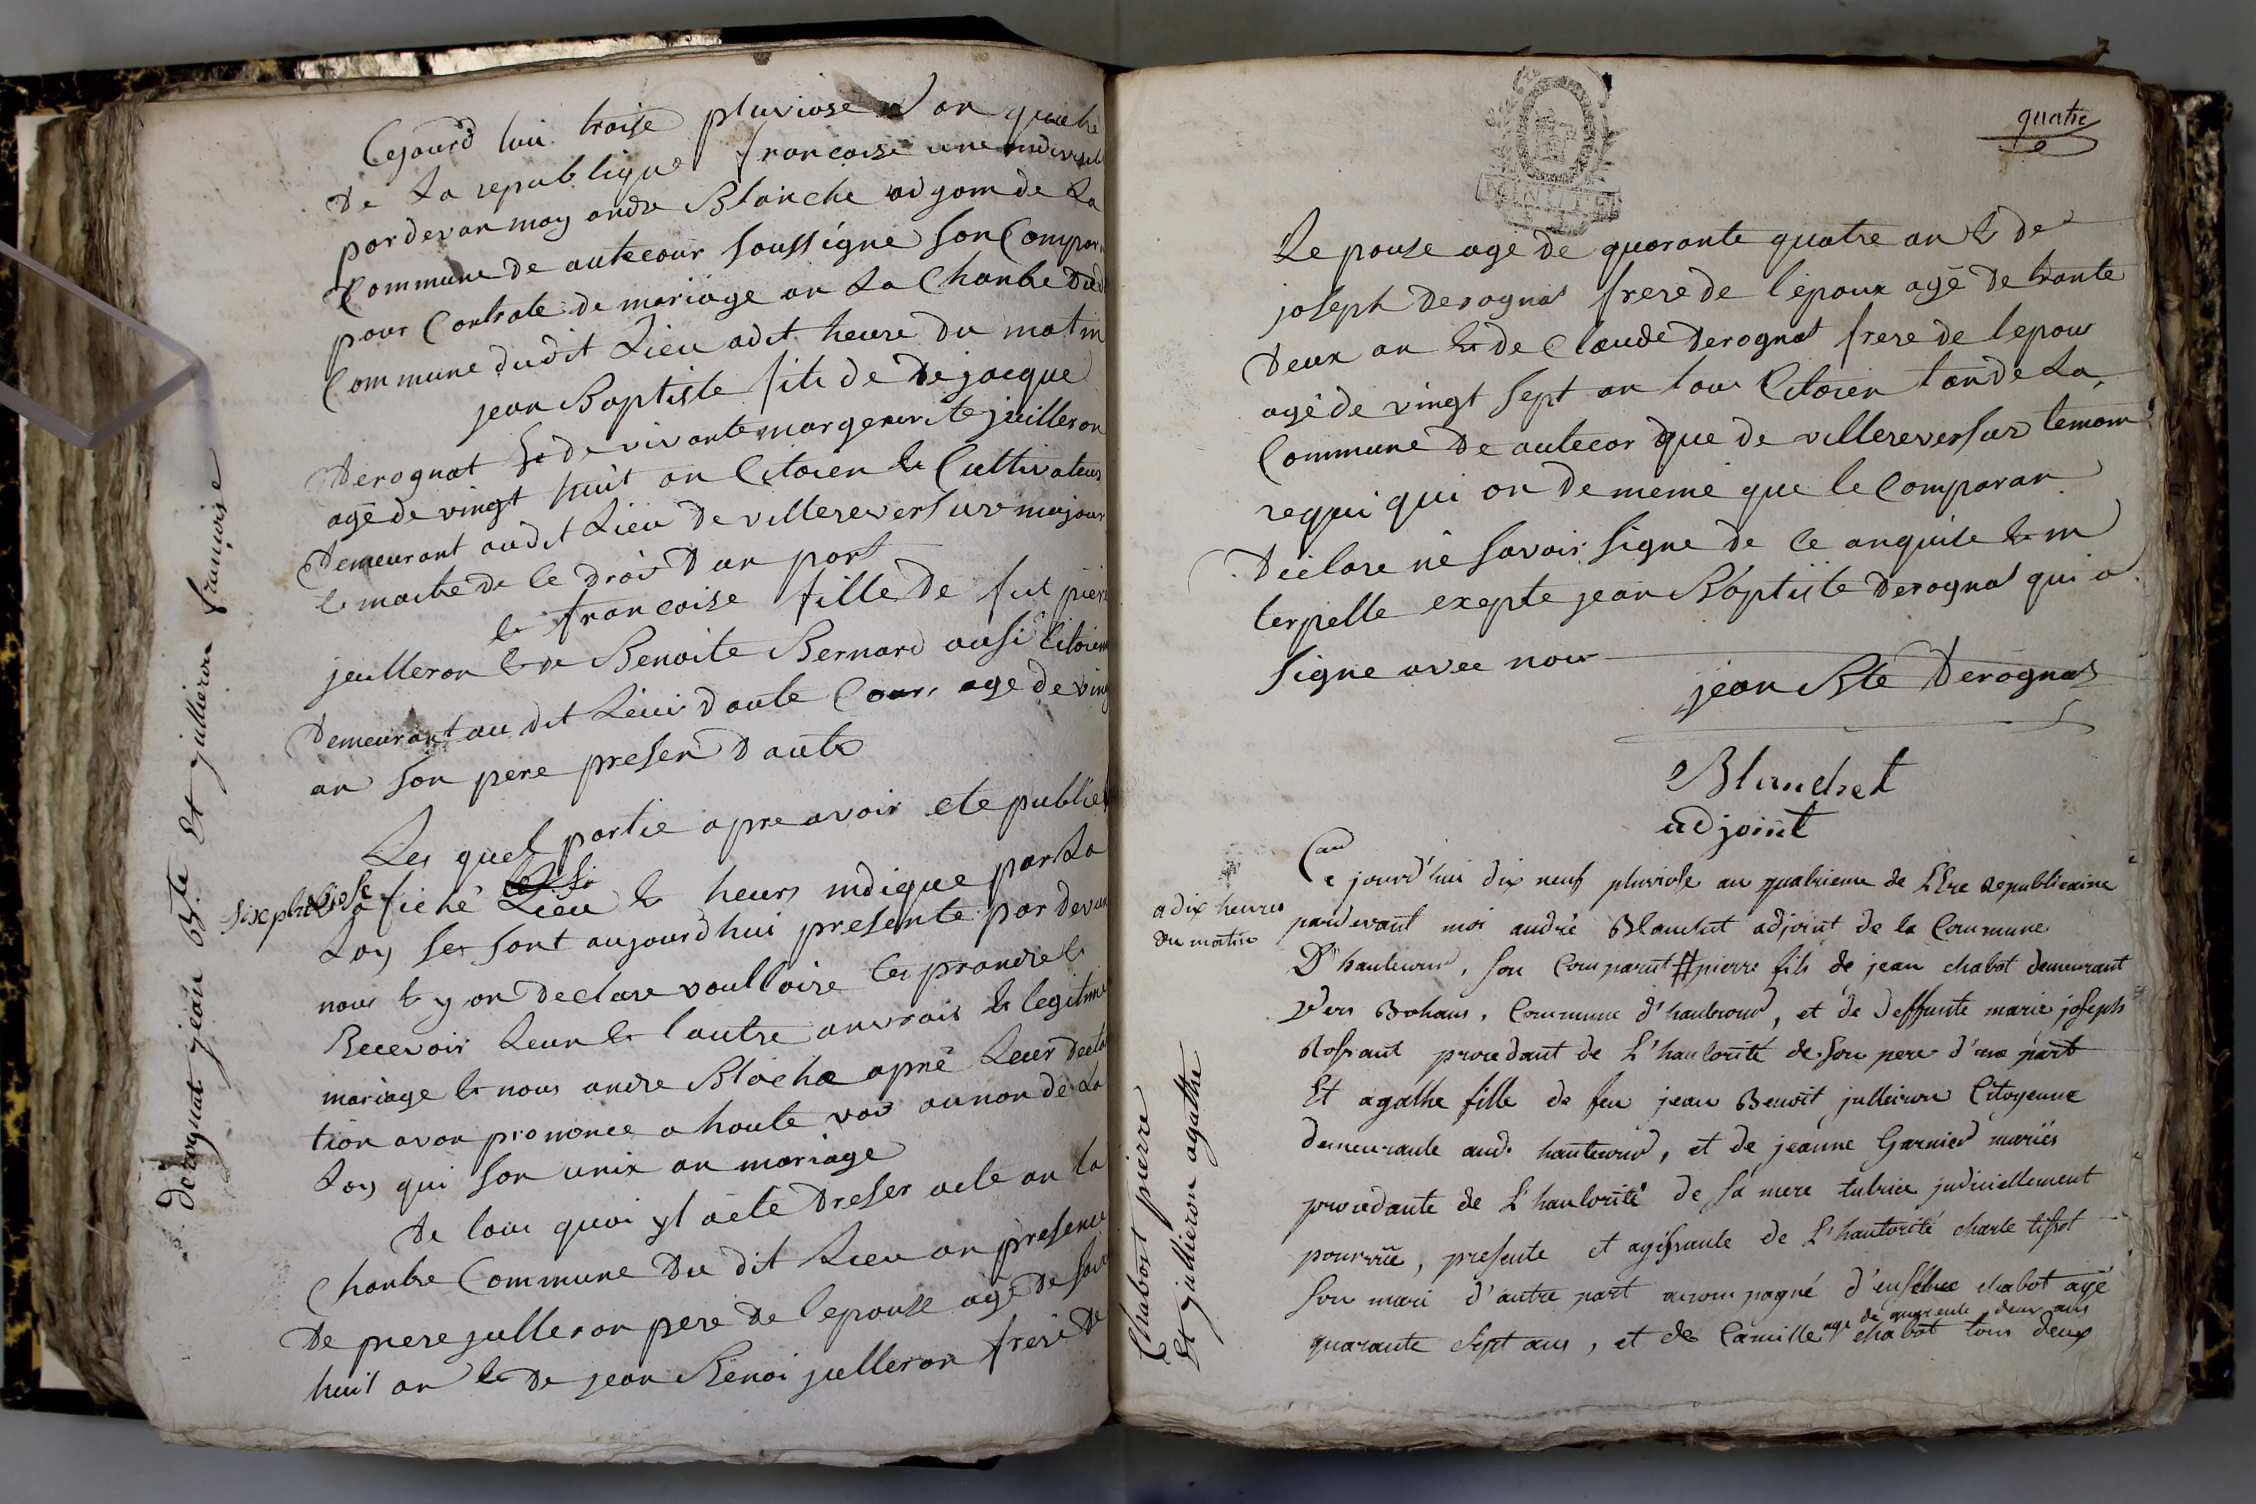 Cejourd hui traise pluviose l an quatre
De La republique francoise une indivisible
pardevan moy andre Blanche adyom de La
Commune de autecour soussigne son Compar
pour Contrate de mariage an La Chanbe Dud
Commune dudit Lieu a dit heure du matin
jean Baptiste fils de De jacque
Derognat & de vivante margeurite juilleron
agé de vingt huit an Citoien & Cultivateur
Demeurant audit Lieu de villereversure majour
& maitre de le Drois D un part
& francoise fille de fut piere
juilleron & de Benoite Bernard ausi Citoien
Demeurant au dit Lieu d aute Cour, age de vingt
an son pere presen D autre
Les quel partie apre avoir ete publiè
six pluviose
afiché Lieu & heurs indique par La
Loy ses sont aujourdhui presente par devan
nous & y on declare voulloire les prandre &
Recevoir Leun & l autre anvrais & legitime
mariage & nous andre Blache aprè Leur decla
tion avon prononce a haute voi au non de La
Loy qui son unix an mariage
De tous quoi yl aete Dreser acte an la
Chanbre Commune Du dit Lieu an presence
De piere julleron pere de lepouse agé De soi
huit an & De jean Benoi julleron frere de
derognat jean Bte. Et juillieron françoise
quatre
MINUTE
Le pouse age de quarante quatre an & de
joseph Derognat frere de l'epoux agè De trante
deux an & de Claude Derognat frere de lepou
agè de vingt sept an tous Citoien tan de La
Commune De autecor que de villereversur temoin
requi qui on De meme que le Comparan
Declare nè savoir signe de ce anquite & in
terpelle exepte jean Baptiste Derognat qui a
signe avec nous
jean Bte Derognat
Blanchet
adjoint
a dix heures
du matin
Cejourd'hui dix neuf pluviose an quatrieme de L'Ere Republicaine
pardevant moi andré Blanchet adjoint de la Commune
D'hautecour, son Comparut # pierre fils de jean chabot demeurant
Vers Bohans, Commune d'hautecour, et de deffunte marie joseph
Rossant procedant de L'hautorité de son pere d'une part
Et agathe fille de feu jean Benoit jullieron Citoyenne
demeurante aud. hautecour, et de jeanne Garnier mariés
procedante de L'hautorité de sa mere tutrice judiciellement
pourvuë, presente et agissante de L'hautorité charle tissot
son mari d'autre part accompagné d'enselme chabot agé
age de quarente deux ans
quarante sept ans, et de Camille chabot tous deux
Chabot pierre
Et jullieron agathe